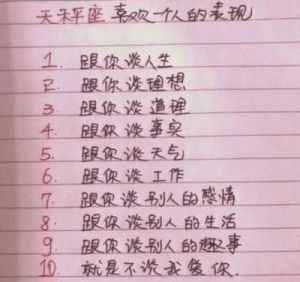 天秤座喜欢一个人的表现
1. 跟你谈人生
2. 跟你谈理想
3. 跟你谈道理
4. 跟你谈事实
5. 跟你谈天气
6. 跟你谈工作
7. 跟你谈别人的感情
8. 跟你谈别人的生活
9. 跟你谈别人的趣事
10. 就是不谈我爱你.